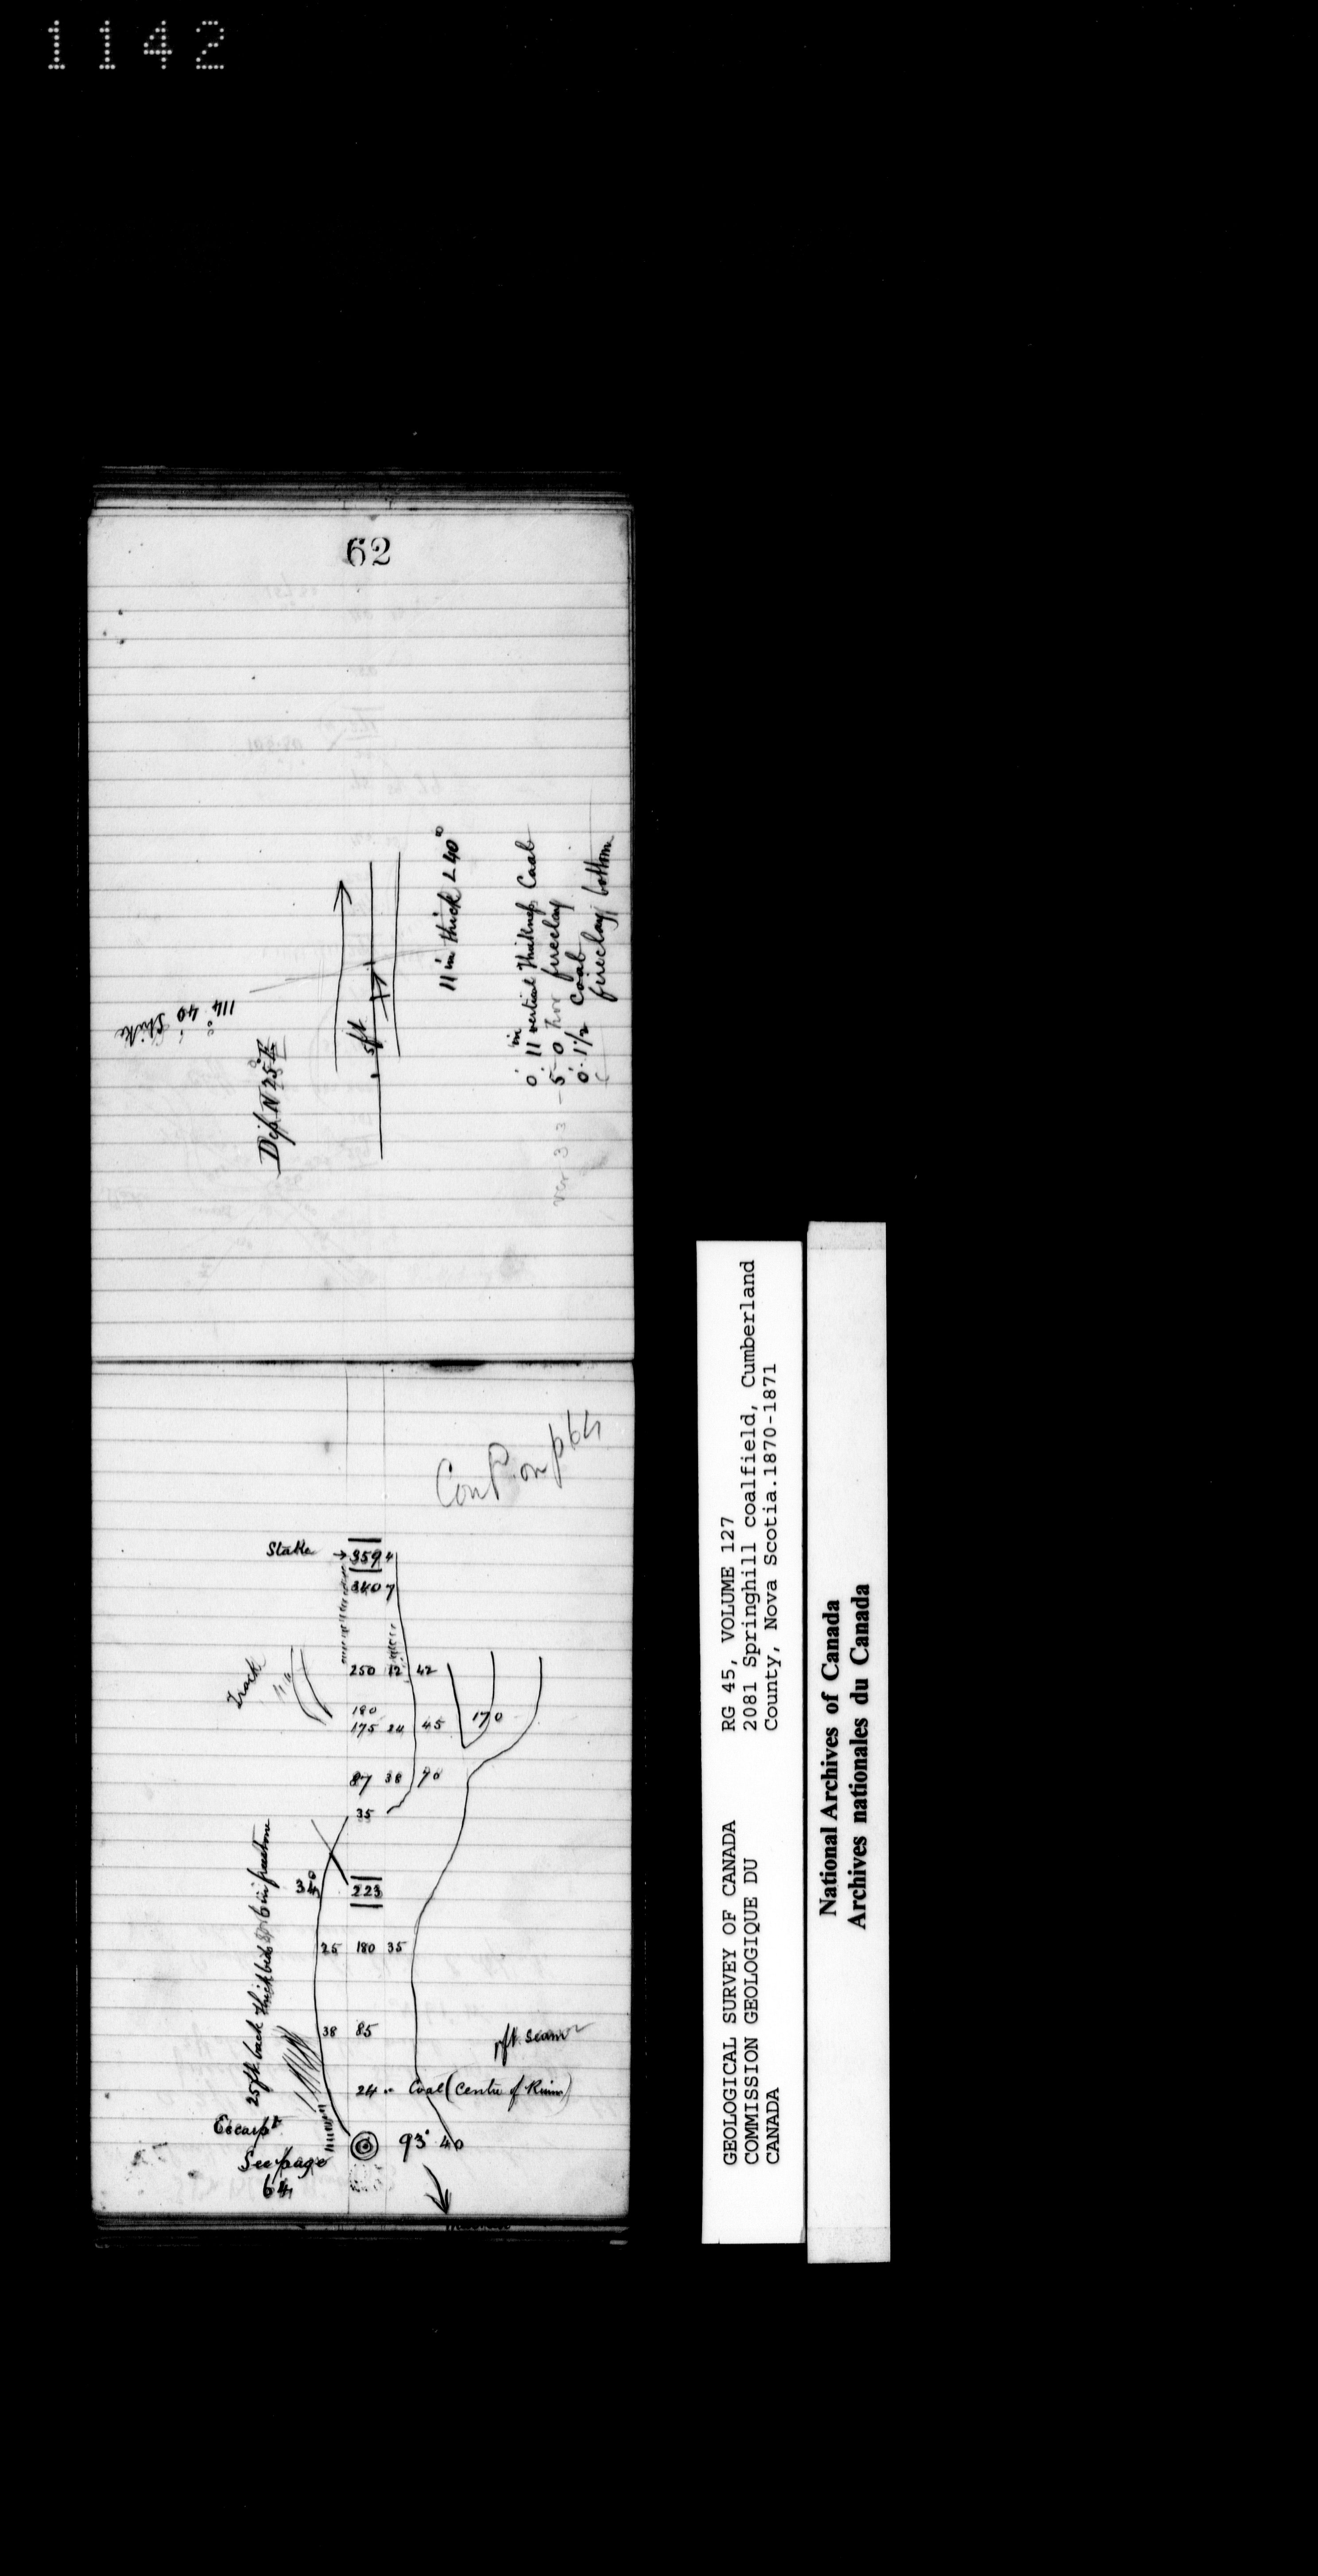 1142
62
114° 40' Strike
Dip N 25° E
5ft
11 in thick ∠ 40°
in
0. 11 vertical thickness Coal
5-0 hor fireclay
0. 1 1/2 coal
fireclay bottom
ver 3-3
Con on p 64
Stake → 359 4
340 7
Track
250 12 42
190
175 24 45 170
87 38 70
35
34°
223
25 180 35
38 85
25ft back thick beds 6 in freestone
7ft seam
24 Coal (Centre of River)
Escarpt
93° 40
See page
64
GEOLOGICAL SURVEY OF CANADA
COMMISSION GEOLOGIQUE DU
CANADA
RG 45, VOLUME 127
2081 Springhill coalfield, Cumberland
County, Nova Scotia.1870-1871
National Archives of Canada
Archives nationales du Canada